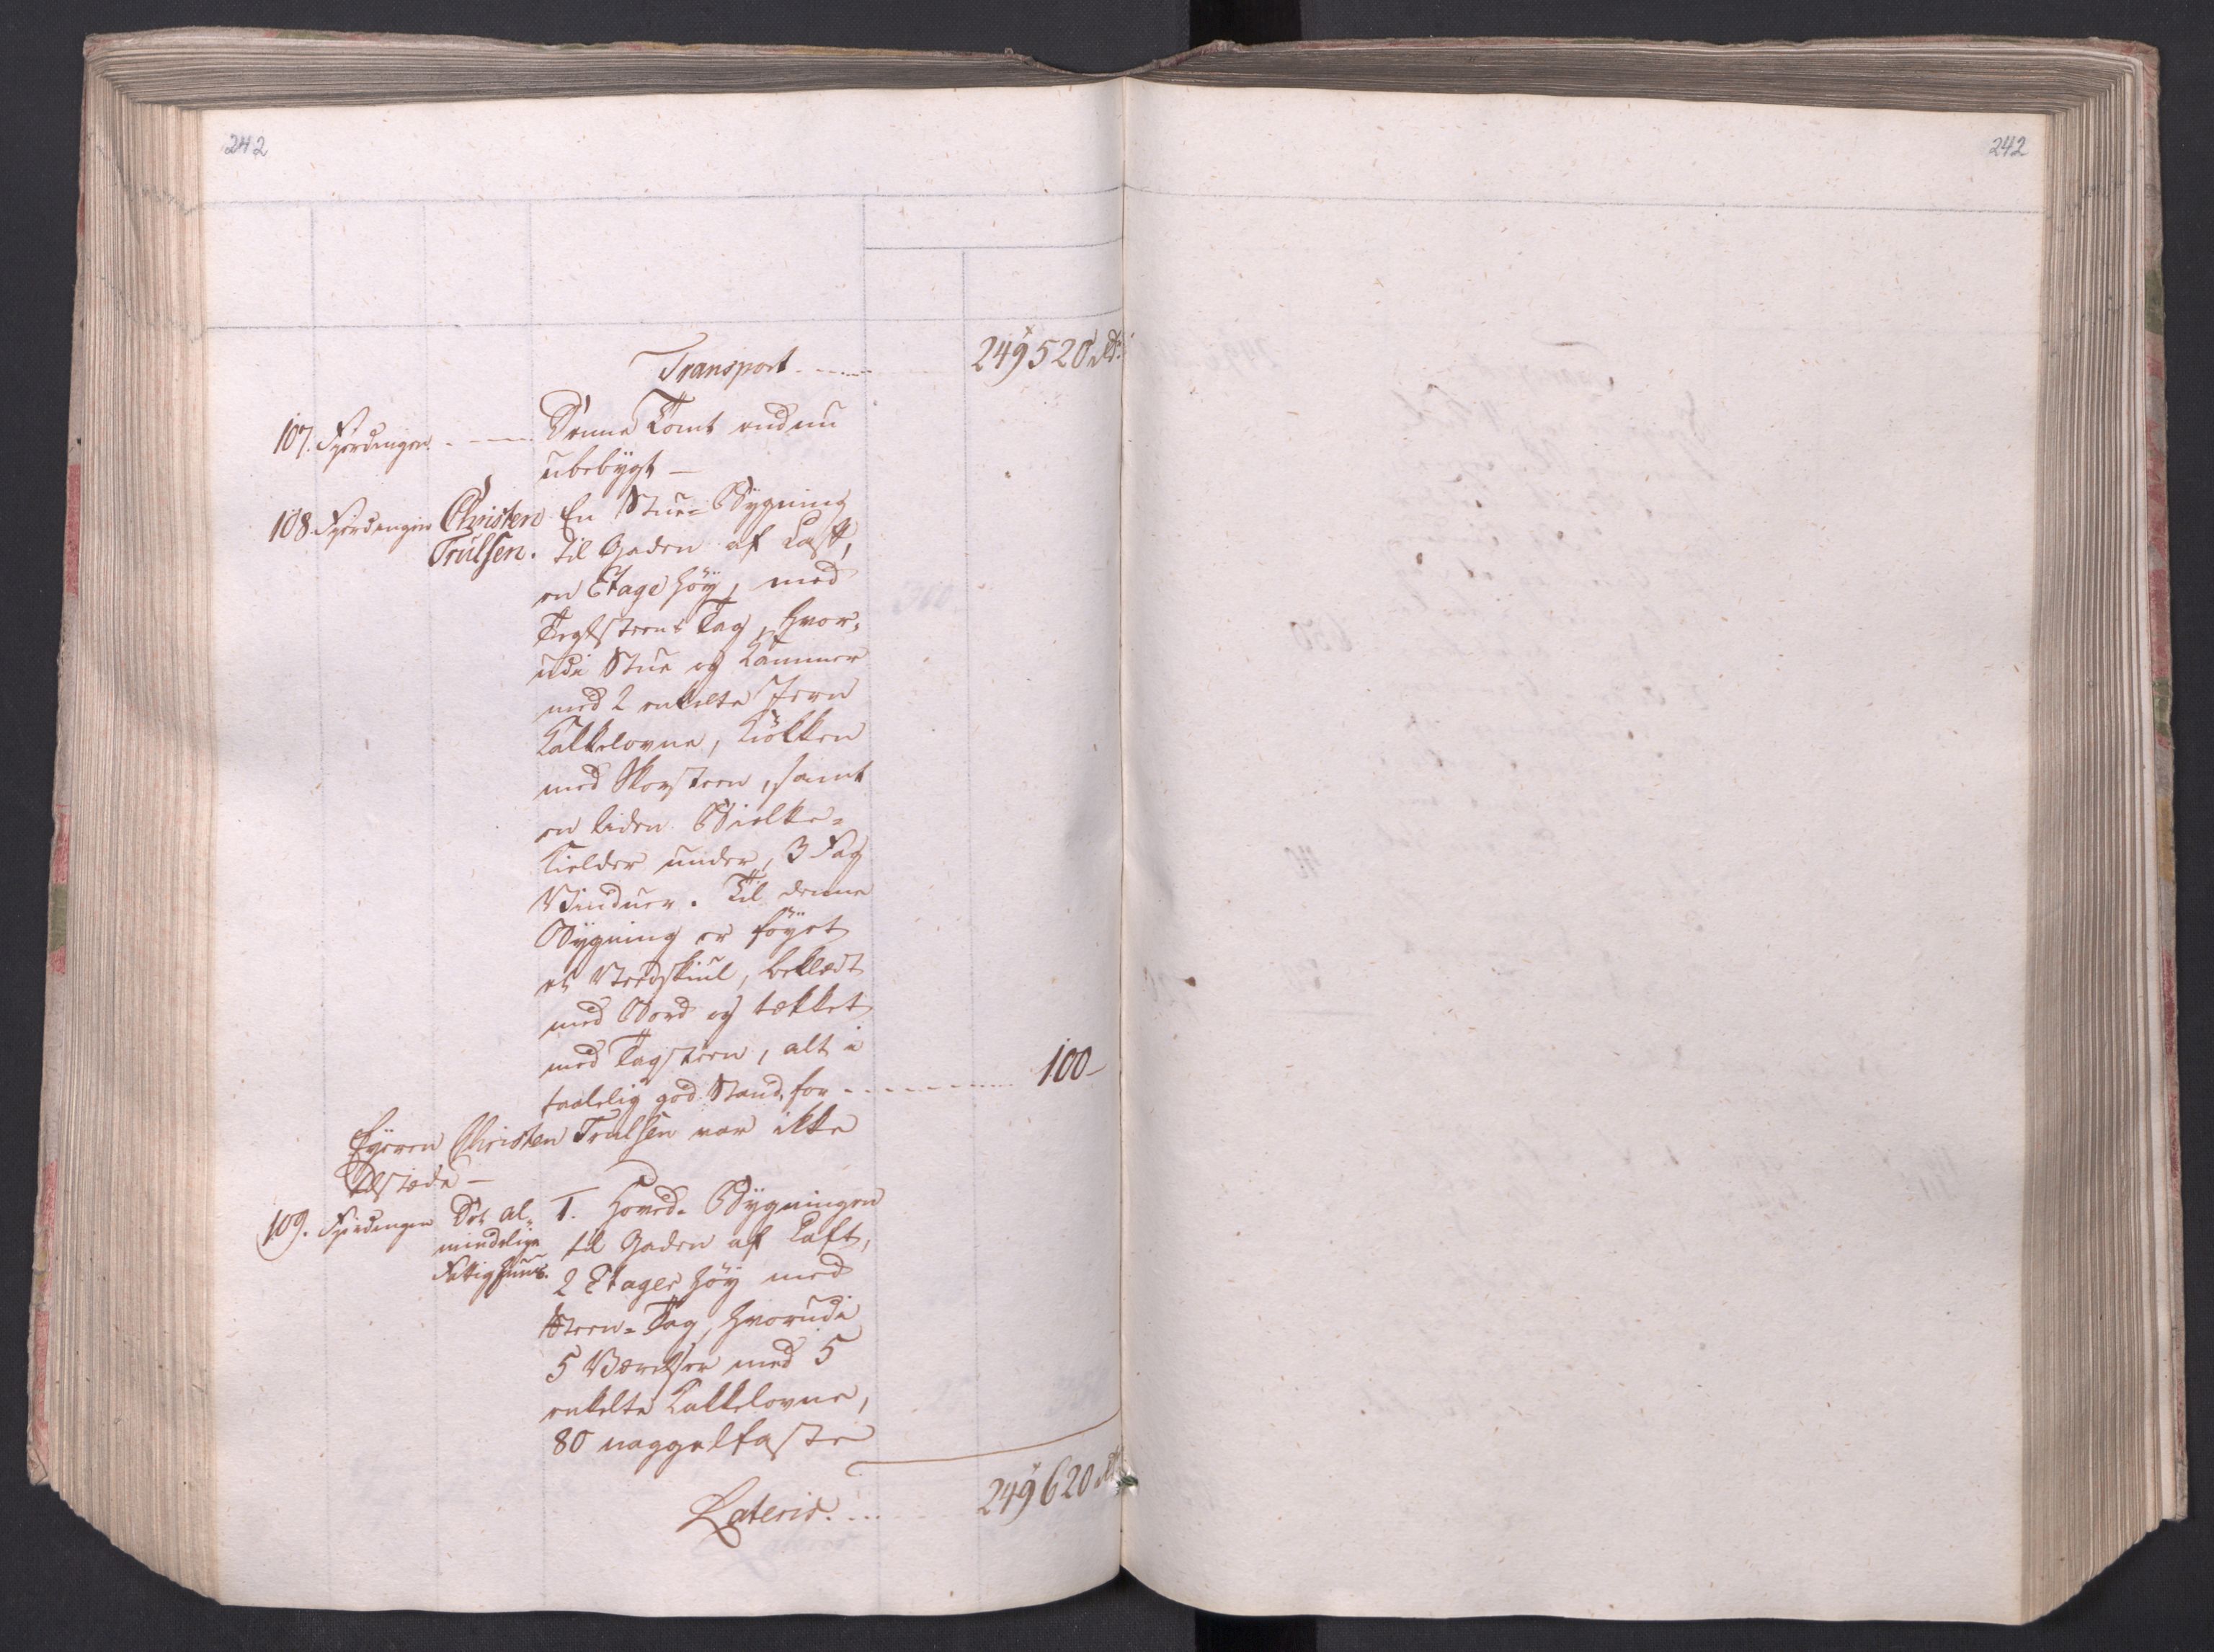 242
242
Transport . . . . . 249520 Rd.
107. Fjerdingen. . — — Denne Tomt endnu
ubebygt —
108. Fjerdingen Christen En Stue-Bygning
Trulsen. til Gaden af Laft,
en Etage høÿ, med
Teglsteens Tag, hvor-
udi Stue og Kammer
med 2 enkelte Jern
Kakkelovne, Kiökken
med Skorsteen, samt
en liden Bielke-
Kielder under, 3 Fag
Vinduer. Til denne
Bygning er föyet
et Vedskiul, beklædt
med Bord og tekket
med Tagsteen, alt i
taalelig god Stand, for . . . . . . 100 —
Eyeren Christen Trulsen var ikke
tilstæde —
109. Fjerdingen Det al- 1. Hoved-Bygningen
mindelige til Gaden af Laft,
Fattighuus. 2 Etager höy med
Steen-Tag, hvorudi
5 Værelser med 5
enkelte Kakkelovne,
80 naggelfaste
Lateris. . . . 249620 Rd.